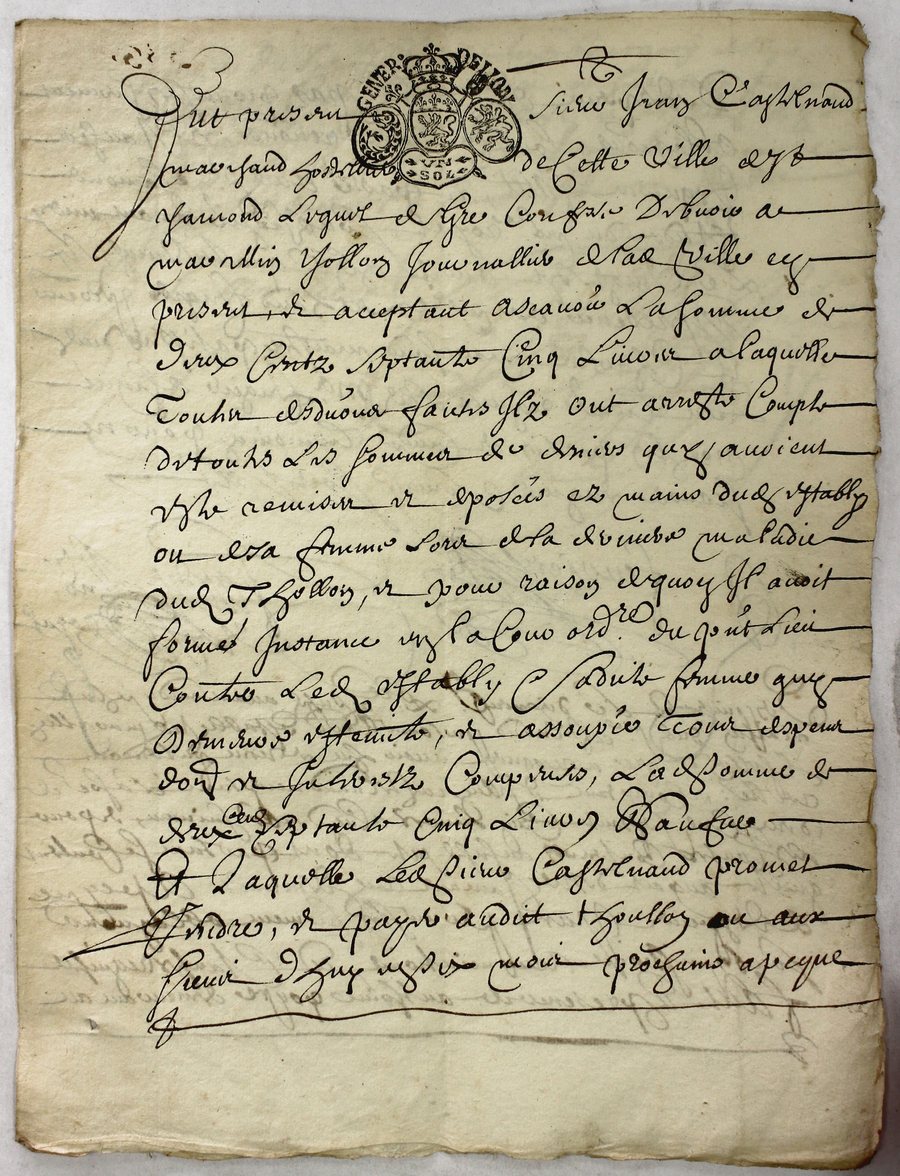 GENER. DE LYON
UN
SOL
Fut present Sieur Jean Castelnaud
marchand hostellier de Cette Ville de St
chamond Lequel de Gre Confesse Debvoir a
Thollon Journallier de lad Ville icy
present, et acceptant ascavoir La somme de
deux Centz septante Cinq Livres a laquelle
Toutes desduones faictes Ilz ont arreste Compte
de toutes Les sommes de deniers quy avoient
este remises et deposées ez mains dud estably
ou de sa femme Lors de la derniere maladie
dud Thollon, et pour raison de quoy Il avoit
formé Instance en la Cour ordre du pnt Lieu
Contre Led estably & sadite femme quy
Demeure esteinte, et assoupie Tour despens
dond et Interestz Compensés, Lad somme de
deux Cent septante Cinq Livres
Et Laquelle Led Sieur Castelnaud promet
Rendre, et payer audict thoullon ou aux
siens d'huy en six mois prochains a peyne